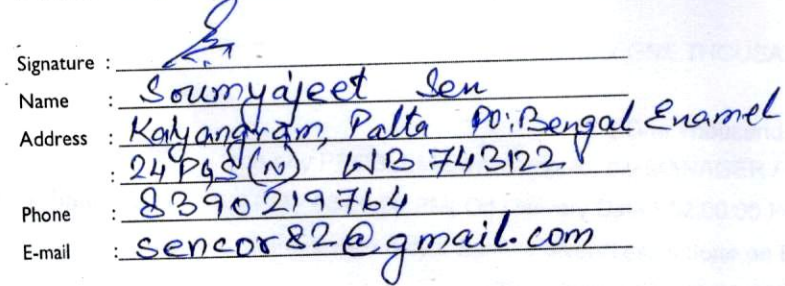 Signature :
Name : Soumyajeet Sen
Address : Kalyangram, Palta PO: Bengal Enamel
: 24 PGS (N) WB 743122
Phone : 8390219764
E-mail : sencor82@gmail.com